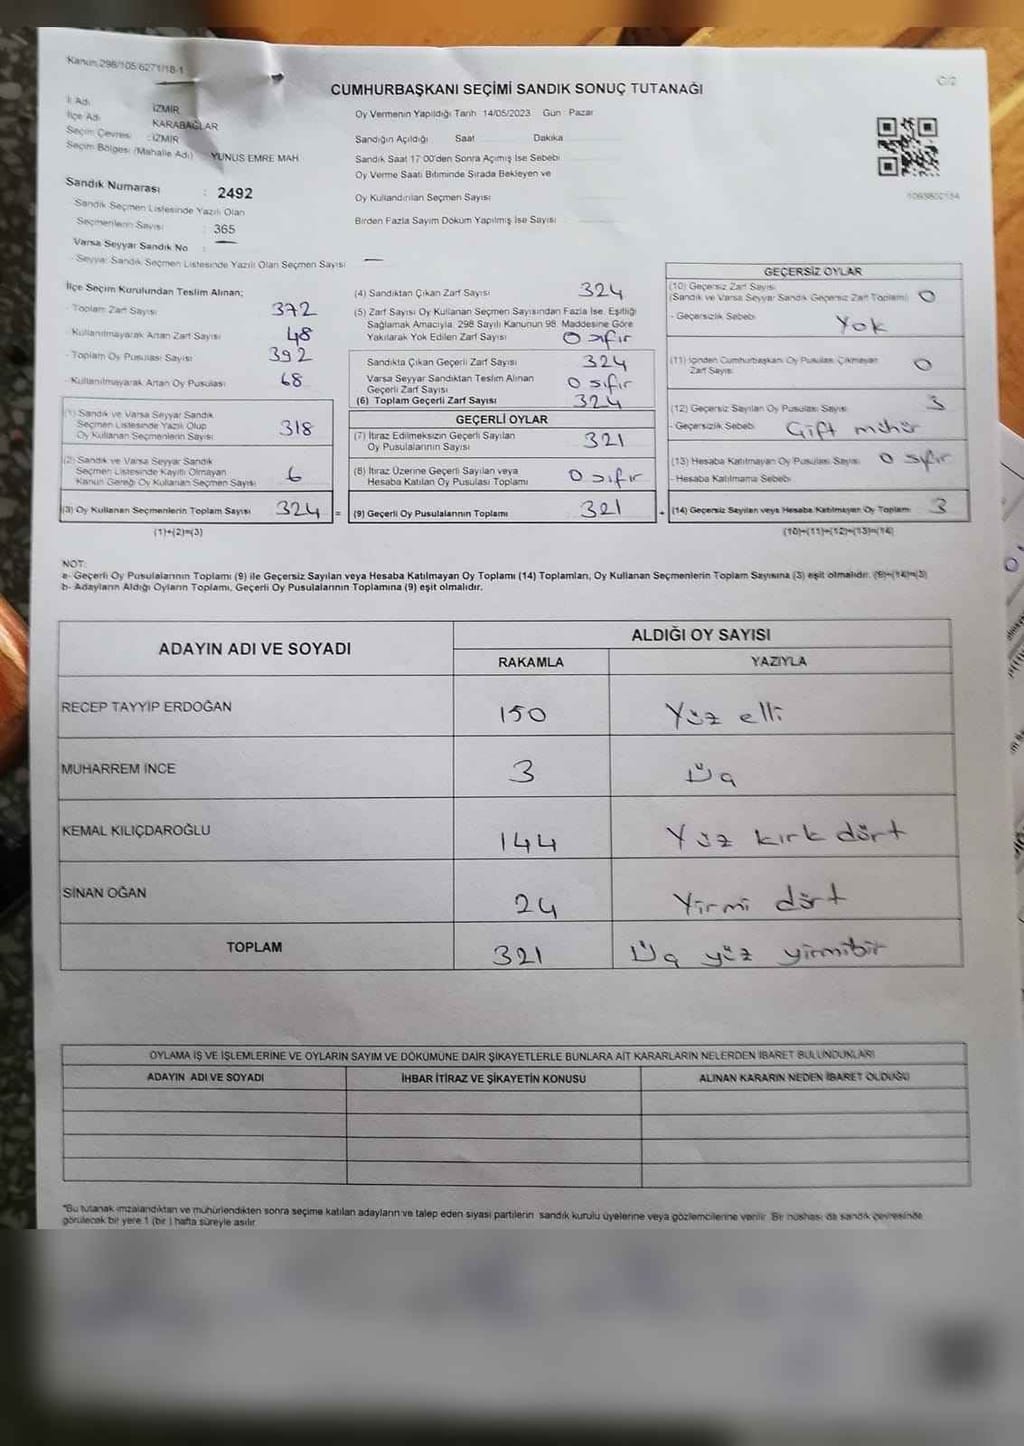 Kanun 298/105 6271/18-1
C/2
CUMHURBAŞKANI SEÇİMİ SANDIK SONUÇ TUTANAĞI
İl Adı İZMİR
İlçe Adı KARABAĞLAR
Seçim Çevresi : İZMİR
Seçim Bölgesi (Mahalle Adı) YUNUS EMRE MAH
Sandık Numarası : 2492
Sandık Seçmen Listesinde Yazılı Olan
Seçmenlerin Sayısı : 365
Varsa Seyyar Sandık No : —
- Seyyar Sandık Seçmen Listesinde Yazılı Olan Seçmen Sayısı —
Oy Vermenin Yapıldığı Tarih 14/05/2023 Gün Pazar
Sandığın Açıldığı Saat Dakika
Sandık Saat 17:00'den Sonra Açımış İse Sebebi
Oy Verme Saati Bitiminde Sırada Bekleyen ve
Oy Kullandırılan Seçmen Sayısı
Birden Fazla Sayım Döküm Yapılmış İse Sayısı
İlçe Seçim Kurulundan Teslim Alınan;
- Toplam Zarf Sayısı 372
- Kullanılmayarak Artan Zarf Sayısı 48
- Toplam Oy Pusulası Sayısı 392
- Kullanılmayarak Artan Oy Pusulası 68
(1) Sandık ve Varsa Seyyar Sandık
Seçmen Listesinde Yazılı Olup
Oy Kullanan Seçmenlerin Sayısı 318
(2) Sandık ve Varsa Seyyar Sandık
Seçmen Listesinde Kayıtlı Olmayan
Kanun Gereği Oy Kullanan Seçmen Sayısı 6
(3) Oy Kullanan Seçmenlerin Toplam Sayısı 324 =
(1)+(2)=(3)
(4) Sandıktan Çıkan Zarf Sayısı 324
(5) Zarf Sayısı Oy Kullanan Seçmen Sayısından Fazla İse, Eşitliği
Sağlamak Amacıyla, 298 Sayılı Kanunun 98. Maddesine Göre
Yakılarak Yok Edilen Zarf Sayısı 0 sıfır
Sandıkta Çıkan Geçerli Zarf Sayısı 324
Varsa Seyyar Sandıktan Teslim Alınan
Geçerli Zarf Sayısı 0 sıfır
(6) Toplam Geçerli Zarf Sayısı 324
GEÇERLİ OYLAR
(7) İtiraz Edilmeksizin Geçerli Sayılan
Oy Pusulalarının Sayısı 321
(8) İtiraz Üzerine Geçerli Sayılan veya
Hesaba Katılan Oy Pusulası Toplamı 0 sıfır
(9) Geçerli Oy Pusulalarının Toplamı 321 +
GEÇERSİZ OYLAR
(10) Geçersiz Zarf Sayısı
(Sandık ve Varsa Seyyar Sandık Geçersiz Zarf Toplamı) 0
- Geçersizlik Sebebi Yok
(11) İçinden Cumhurbaşkanı Oy Pusulası Çıkmayan
Zarf Sayısı 0
(12) Geçersiz Sayılan Oy Pusulası Sayısı 3
- Geçersizlik Sebebi Çift mühür
(13) Hesaba Katılmayan Oy Pusulası Sayısı 0 sıfır
- Hesaba Katılmama Sebebi
(14) Geçersiz Sayılan veya Hesaba Katılmayan Oy Toplamı 3
(10)+(11)+(12)+(13)=(14)
NOT:
a- Geçerli Oy Pusulalarının Toplamı (9) ile Geçersiz Sayılan veya Hesaba Katılmayan Oy Toplamı (14) Toplamları, Oy Kullanan Seçmenlerin Toplam Sayısına (3) eşit olmalıdır. (9)+(14)=(3)
b- Adayların Aldığı Oyların Toplamı, Geçerli Oy Pusulalarının Toplamına (9) eşit olmalıdır.
ADAYIN ADI VE SOYADI ALDIĞI OY SAYISI
RAKAMLA YAZIYLA
RECEP TAYYİP ERDOĞAN 150 Yüz elli
MUHARREM İNCE 3 Üç
KEMAL KILIÇDAROĞLU 144 Yüz kırk dört
SİNAN OĞAN 24 Yirmi dört
TOPLAM 321 Üç yüz yirmibir
OYLAMA İŞ VE İŞLEMLERİNE VE OYLARIN SAYIM VE DÖKÜMÜNE DAİR ŞİKAYETLERLE BUNLARA AİT KARARLARIN NELERDEN İBARET BULUNDUKLARI
ADAYIN ADI VE SOYADI İHBAR İTİRAZ VE ŞİKAYETİN KONUSU ALINAN KARARIN NEDEN İBARET OLDUĞU
*Bu tutanak imzalandıktan ve mühürlendikten sonra seçime katılan adayların ve talep eden siyasi partilerin sandık kurulu üyelerine veya gözlemcilerine verilir. Bir nüshası da sandık çevresinde
görülecek bir yere 1 (bir ) hafta süreyle asılır